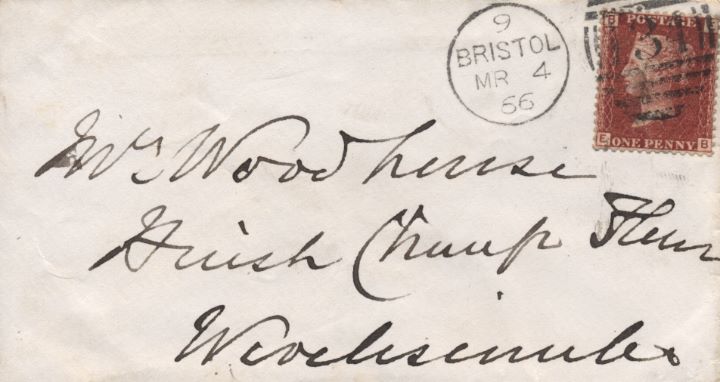 9
BRISTOL
MR 4
66
B POSTAGE
34
E ONE PENNY B
Mrs Woodhouse
Huish Champ Flour
Wiveliscombe